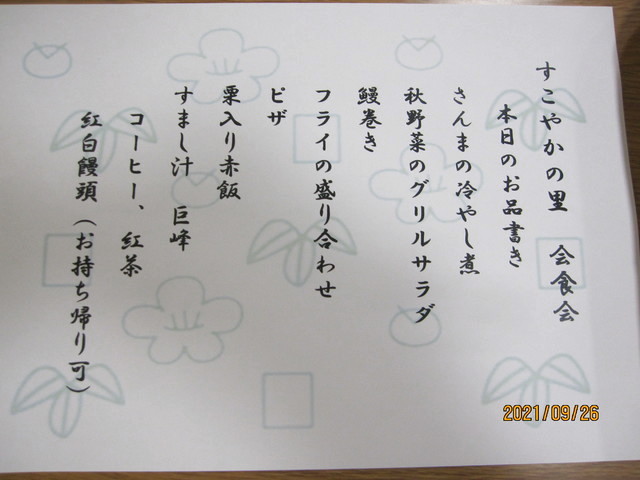 すこやかの里 会食会
本日のお品書き
さんまの冷やし煮
秋野菜のグリルサラダ
鰻巻き
フライの盛り合わせ
ピザ
栗入り赤飯
すまし汁 巨峰
コーヒー、紅茶
紅白饅頭（お持ち帰り可）
2021/09/26